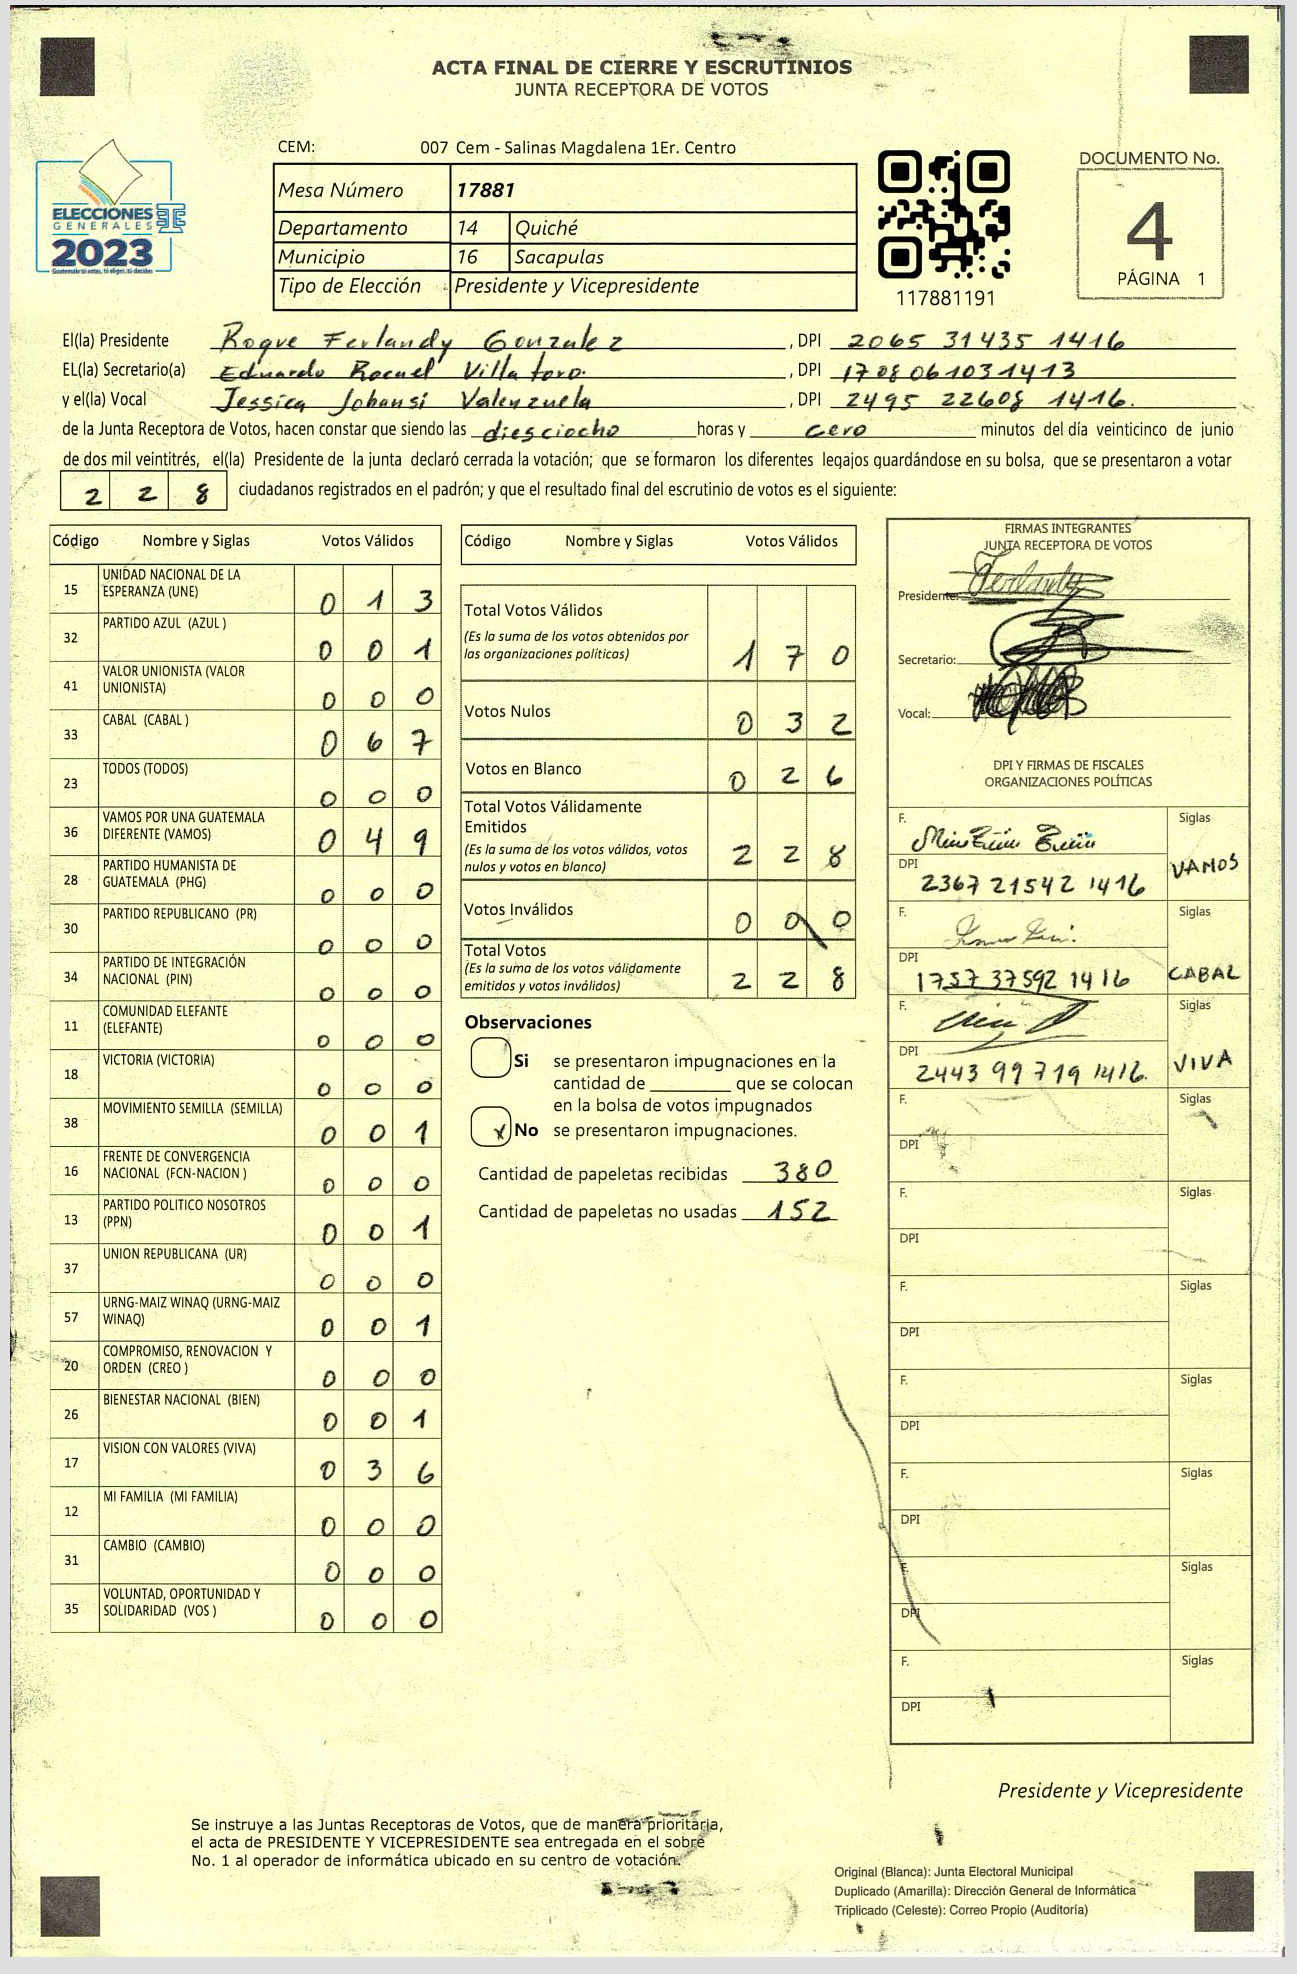 ACTA FINAL DE CIERRE Y ESCRUTINIOS
JUNTA RECEPTORA DE VOTOS
CEM: 007 Cem - Salinas Magdalena 1Er. Centro
ELECCIONES
GENERALES
2023
Guatemala tú votas, tú eliges, tú decides
Mesa Número 17881
Departamento 14 Quiché
Municipio 16 Sacapulas
Tipo de Elección Presidente y Vicepresidente
117881191
DOCUMENTO No.
4
PÁGINA 1
El(la) Presidente Roque Ferlandy Gonzalez, DPI 2065 31435 1416
EL(la) Secretario(a) Eduardo Rocael Villatoro., DPI 1708 06103 1413
y el(la) Vocal Jessica Johansi Valenzuela, DPI 2495 22608 1416.
de la Junta Receptora de Votos, hacen constar que siendo las diesciocho horas y cero minutos del día veinticinco de junio
de dos mil veintitrés, el(la) Presidente de la junta declaró cerrada la votación; que se formaron los diferentes legajos guardándose en su bolsa, que se presentaron a votar
2 2 8 ciudadanos registrados en el padrón; y que el resultado final del escrutinio de votos es el siguiente:
Código Nombre y Siglas Votos Válidos
15 UNIDAD NACIONAL DE LA
ESPERANZA (UNE) 0 1 3
32 PARTIDO AZUL (AZUL ) 0 0 1
41 VALOR UNIONISTA (VALOR
UNIONISTA) 0 0 0
33 CABAL (CABAL ) 0 6 7
23 TODOS (TODOS) 0 0 0
36 VAMOS POR UNA GUATEMALA
DIFERENTE (VAMOS) 0 4 9
28 PARTIDO HUMANISTA DE
GUATEMALA (PHG) 0 0 0
30 PARTIDO REPUBLICANO (PR) 0 0 0
34 PARTIDO DE INTEGRACIÓN
NACIONAL (PIN) 0 0 0
11 COMUNIDAD ELEFANTE
(ELEFANTE) 0 0 0
18 VICTORIA (VICTORIA) 0 0 0
38 MOVIMIENTO SEMILLA (SEMILLA) 0 0 1
16 FRENTE DE CONVERGENCIA
NACIONAL (FCN-NACION ) 0 0 0
13 PARTIDO POLITICO NOSOTROS
(PPN) 0 0 1
37 UNION REPUBLICANA (UR) 0 0 0
57 URNG-MAIZ WINAQ (URNG-MAIZ
WINAQ) 0 0 1
20 COMPROMISO, RENOVACION Y
ORDEN (CREO ) 0 0 0
26 BIENESTAR NACIONAL (BIEN) 0 0 1
17 VISION CON VALORES (VIVA) 0 3 6
12 MI FAMILIA (MI FAMILIA) 0 0 0
31 CAMBIO (CAMBIO) 0 0 0
35 VOLUNTAD, OPORTUNIDAD Y
SOLIDARIDAD (VOS ) 0 0 0
Código Nombre y Siglas Votos Válidos
Total Votos Válidos
(Es la suma de los votos obtenidos por
las organizaciones políticas) 1 7 0
Votos Nulos 0 3 2
Votos en Blanco 0 2 6
Total Votos Válidamente
Emitidos
(Es la suma de los votos válidos, votos
nulos y votos en blanco) 2 2 8
Votos Inválidos 0 0 0
Total Votos
(Es la suma de los votos válidamente
emitidos y votos inválidos) 2 2 8
Observaciones
Si se presentaron impugnaciones en la
cantidad de ________ que se colocan
en la bolsa de votos impugnados
x No se presentaron impugnaciones.
Cantidad de papeletas recibidas 380
Cantidad de papeletas no usadas 152
FIRMAS INTEGRANTES
JUNTA RECEPTORA DE VOTOS
Presidente:
Secretario:
Vocal:
DPI Y FIRMAS DE FISCALES
ORGANIZACIONES POLÍTICAS
F. Siglas
DPI 2367 21542 1416 VAMOS
F. Siglas
DPI 1757 37592 1416 CABAL
F. Siglas
DPI 2443 99719 1416. VIVA
F. Siglas
DPI
F. Siglas
DPI
F. Siglas
DPI
F. Siglas
DPI
F. Siglas
DPI
F. Siglas
DPI
F. Siglas
DPI
Presidente y Vicepresidente
Se instruye a las Juntas Receptoras de Votos, que de manera prioritaria,
el acta de PRESIDENTE Y VICEPRESIDENTE sea entregada en el sobre
No. 1 al operador de informática ubicado en su centro de votación.
Original (Blanca): Junta Electoral Municipal
Duplicado (Amarilla): Dirección General de Informática
Triplicado (Celeste): Correo Propio (Auditoría)